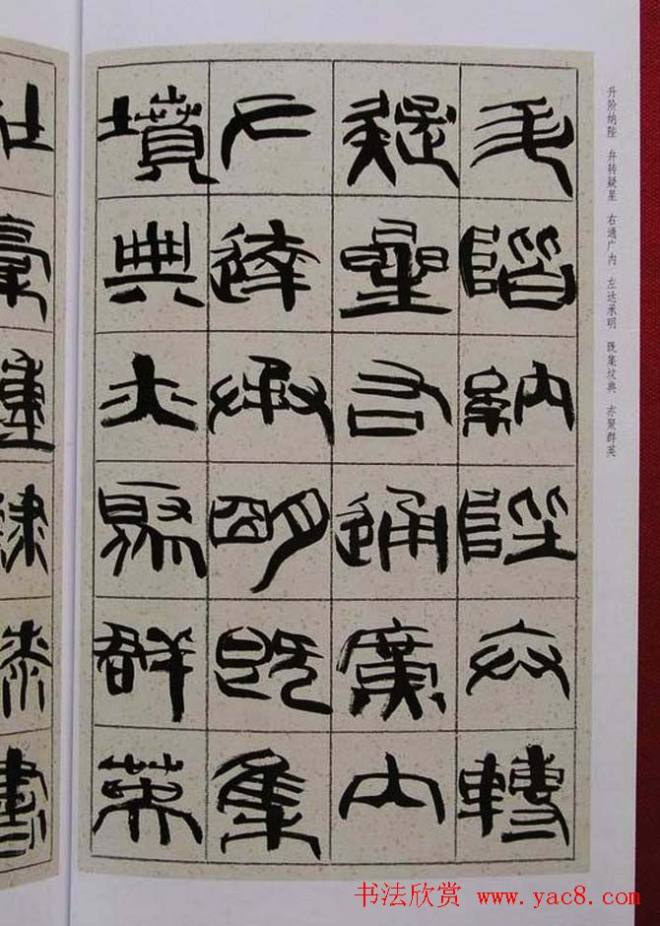 升阶纳陛 弁转疑星 右通广内 左达承明 既集坟典 亦聚群英
升階納陛弁轉
疑星右通廣内
左達承明既集
墳典亦聚群英
书法欣赏 www.yac8.com